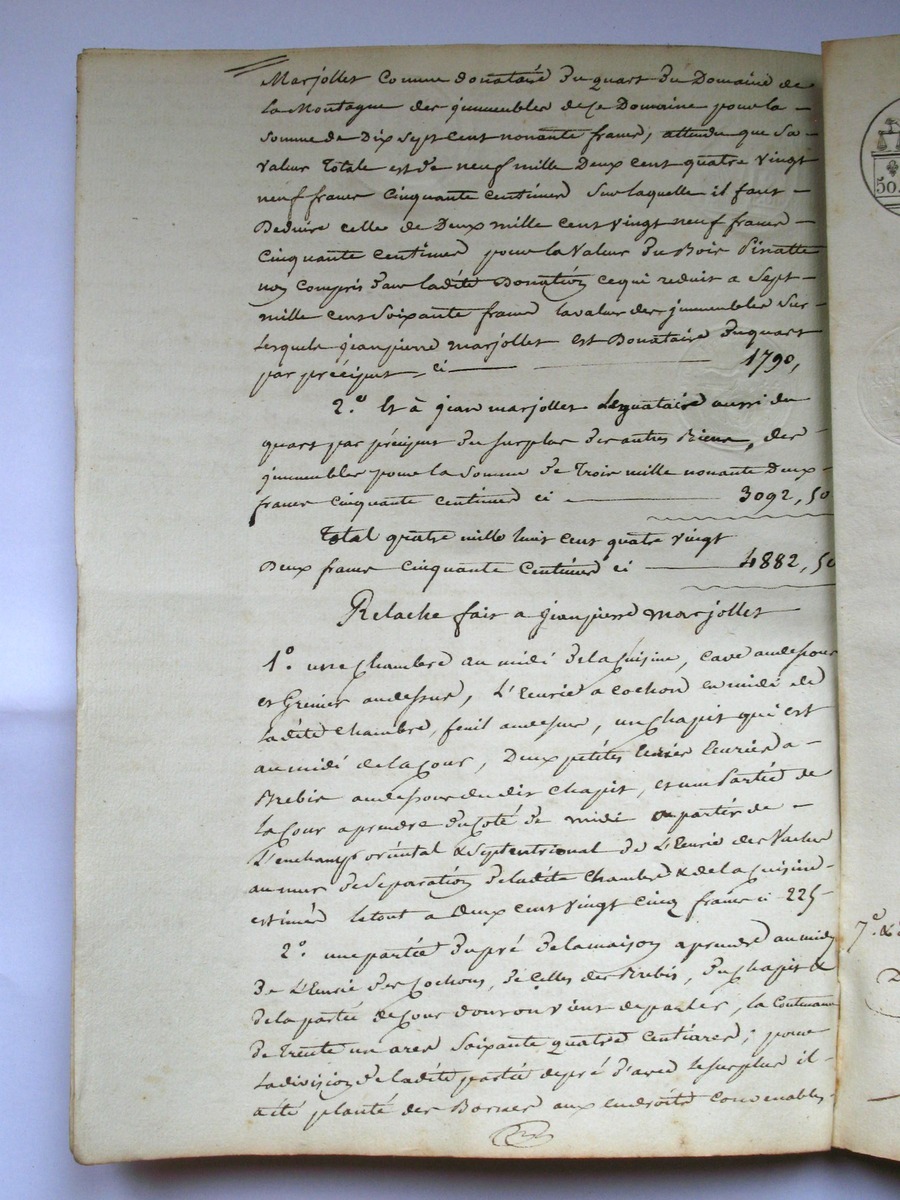 Marjollet Comme donataire du quart du Domaine de
La Montagne des jmmeubles de ce Domaine pour la
Somme de Dix Sept Cent nonante francs, attendu que Sa
Valeur Totale est de neuf mille Deux cent quatre vingt
neuf francs Cinquante Centimes Sur laquelle il faut
Deduire celle de Deux mille Cent vingt neuf francs
Cinquante Centimes pour la Valeur du Bois Pinatte
non Compris dans ladite Donation ce qui reduit a Sept
mille cent Soixante francs la valeur des jmmeubles Sur
Lesquels jean pierre Marjollet est Donataire du quart
par préciput, ci 1790,
2.° Et à jean marjollet Leguataire aussi du
quart par préciput du Surplus des autres Biens, des
jmmeubles pour la Somme de Trois mille nonante Deux
francs Cinquante Centimes ci 3092, 50
Total quatre mille huit Cent quatre vingt
Deux francs Cinquante Centimes ci 4882, 50
Relache fait a jean pierre Marjollet
1.° une Chambre au midi de la Cuisine, Cave au dessous
et Grenier au dessus, L'Ecurie a Cochon en midi de
Ladite Chambre, feuil au dessus, un Chapit qui est
au midi de la Cour, Deux petites Ecuries a
Brebis au dessous du dit Chapit, et une Partie de
La Cour a prendre du Coté de midi a partir de
L'enchamp oriental & Septentrional de L'Ecurie des Vaches
au mur de Separation de ladite Chambre & de la Cuisine
estimés le tout a Deux cent vingt Cinq francs ci 225
2.° une partie du pré de la maison a prendre au midi
De L'Ecurie des Cochons, de Celles des Brebis, du Chapit &
de la partie de Cour dont on vient de parler, la Contenance
de Trente un ares Soixante quatre Centiares; pour
La division de ladite partie de pré d'avec le surplus il
a été planté des Bornes aux endroits Convenables
50
7.° &